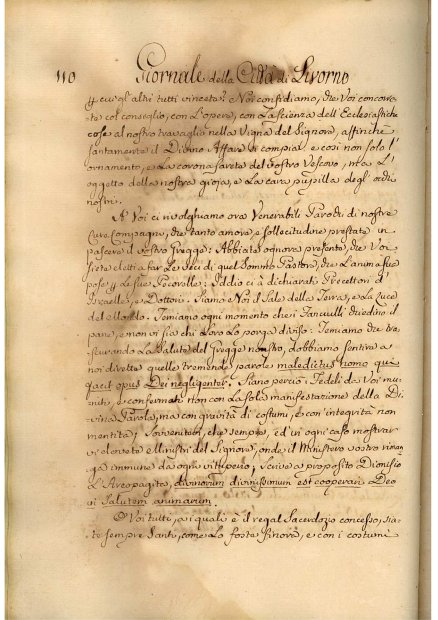 110 Giornale della Città di Livorno
gl'altri tutti vinceta? Noi confidiamo, che Voi concorre-
te col consiglio, con l'opera, con la scienza dell'Ecclesiastiche
cose al nostro travaglio nella Vigna del Signore, affinche
santamente il Divino Affare si compia, e così non solo l'
ornamento, e la corona sarete del vostro Vescovo, ma l'
oggetto della nostra gioja, e la cara pupilla degl'occhi
nostri.
A Voi ci rivolghiamo ora Venerabili Parochi di nostre
Cure Compagni, che tanto amore, e sollecitudine prestate in
pascere il vostro Gregge: Abbiate ognora presente, che Voi
siete eletti a far le veci di quel Sommo Pastore, che l'anima sua
pose per le sue Pecorelle: Iddio ci à dichiarati Precettori d'
Israelle, e Dottori. Siamo Noi il Sale della Terra, e la Luce
del Mondo. Temiamo ogni momento che i Fanciulli chiedino il
pane, e non vi sia chi loro lo porga diviso: Temiamo che tra-
scurando la salute del Gregge nostro, dobbiamo sentire a
noi dirette quelle tremende parole maledictus homo qui
facit opus Dei negligenter. Siano perciò i Fedeli da Voi mu-
niti, e confermati non con la sola manifestazione della Di-
vina Parola, ma con gravità di costumi, e con integrità non
mentita; sovvenitevi, che sempre, ed in ogni caso mostrar
vi dovete Ministri del Signore, onde il Ministero vostro riman-
ga immune da ogni vituperio; scrive a proposito Dionisio
l'Areopagita, divinorum divinissimum est cooperari Deo
in salutem animarum.
O Voi tutti, a i quali è il regal Sacerdozio concesso, sia-
te sempre Santi, come lo foste finora, e con i costumi